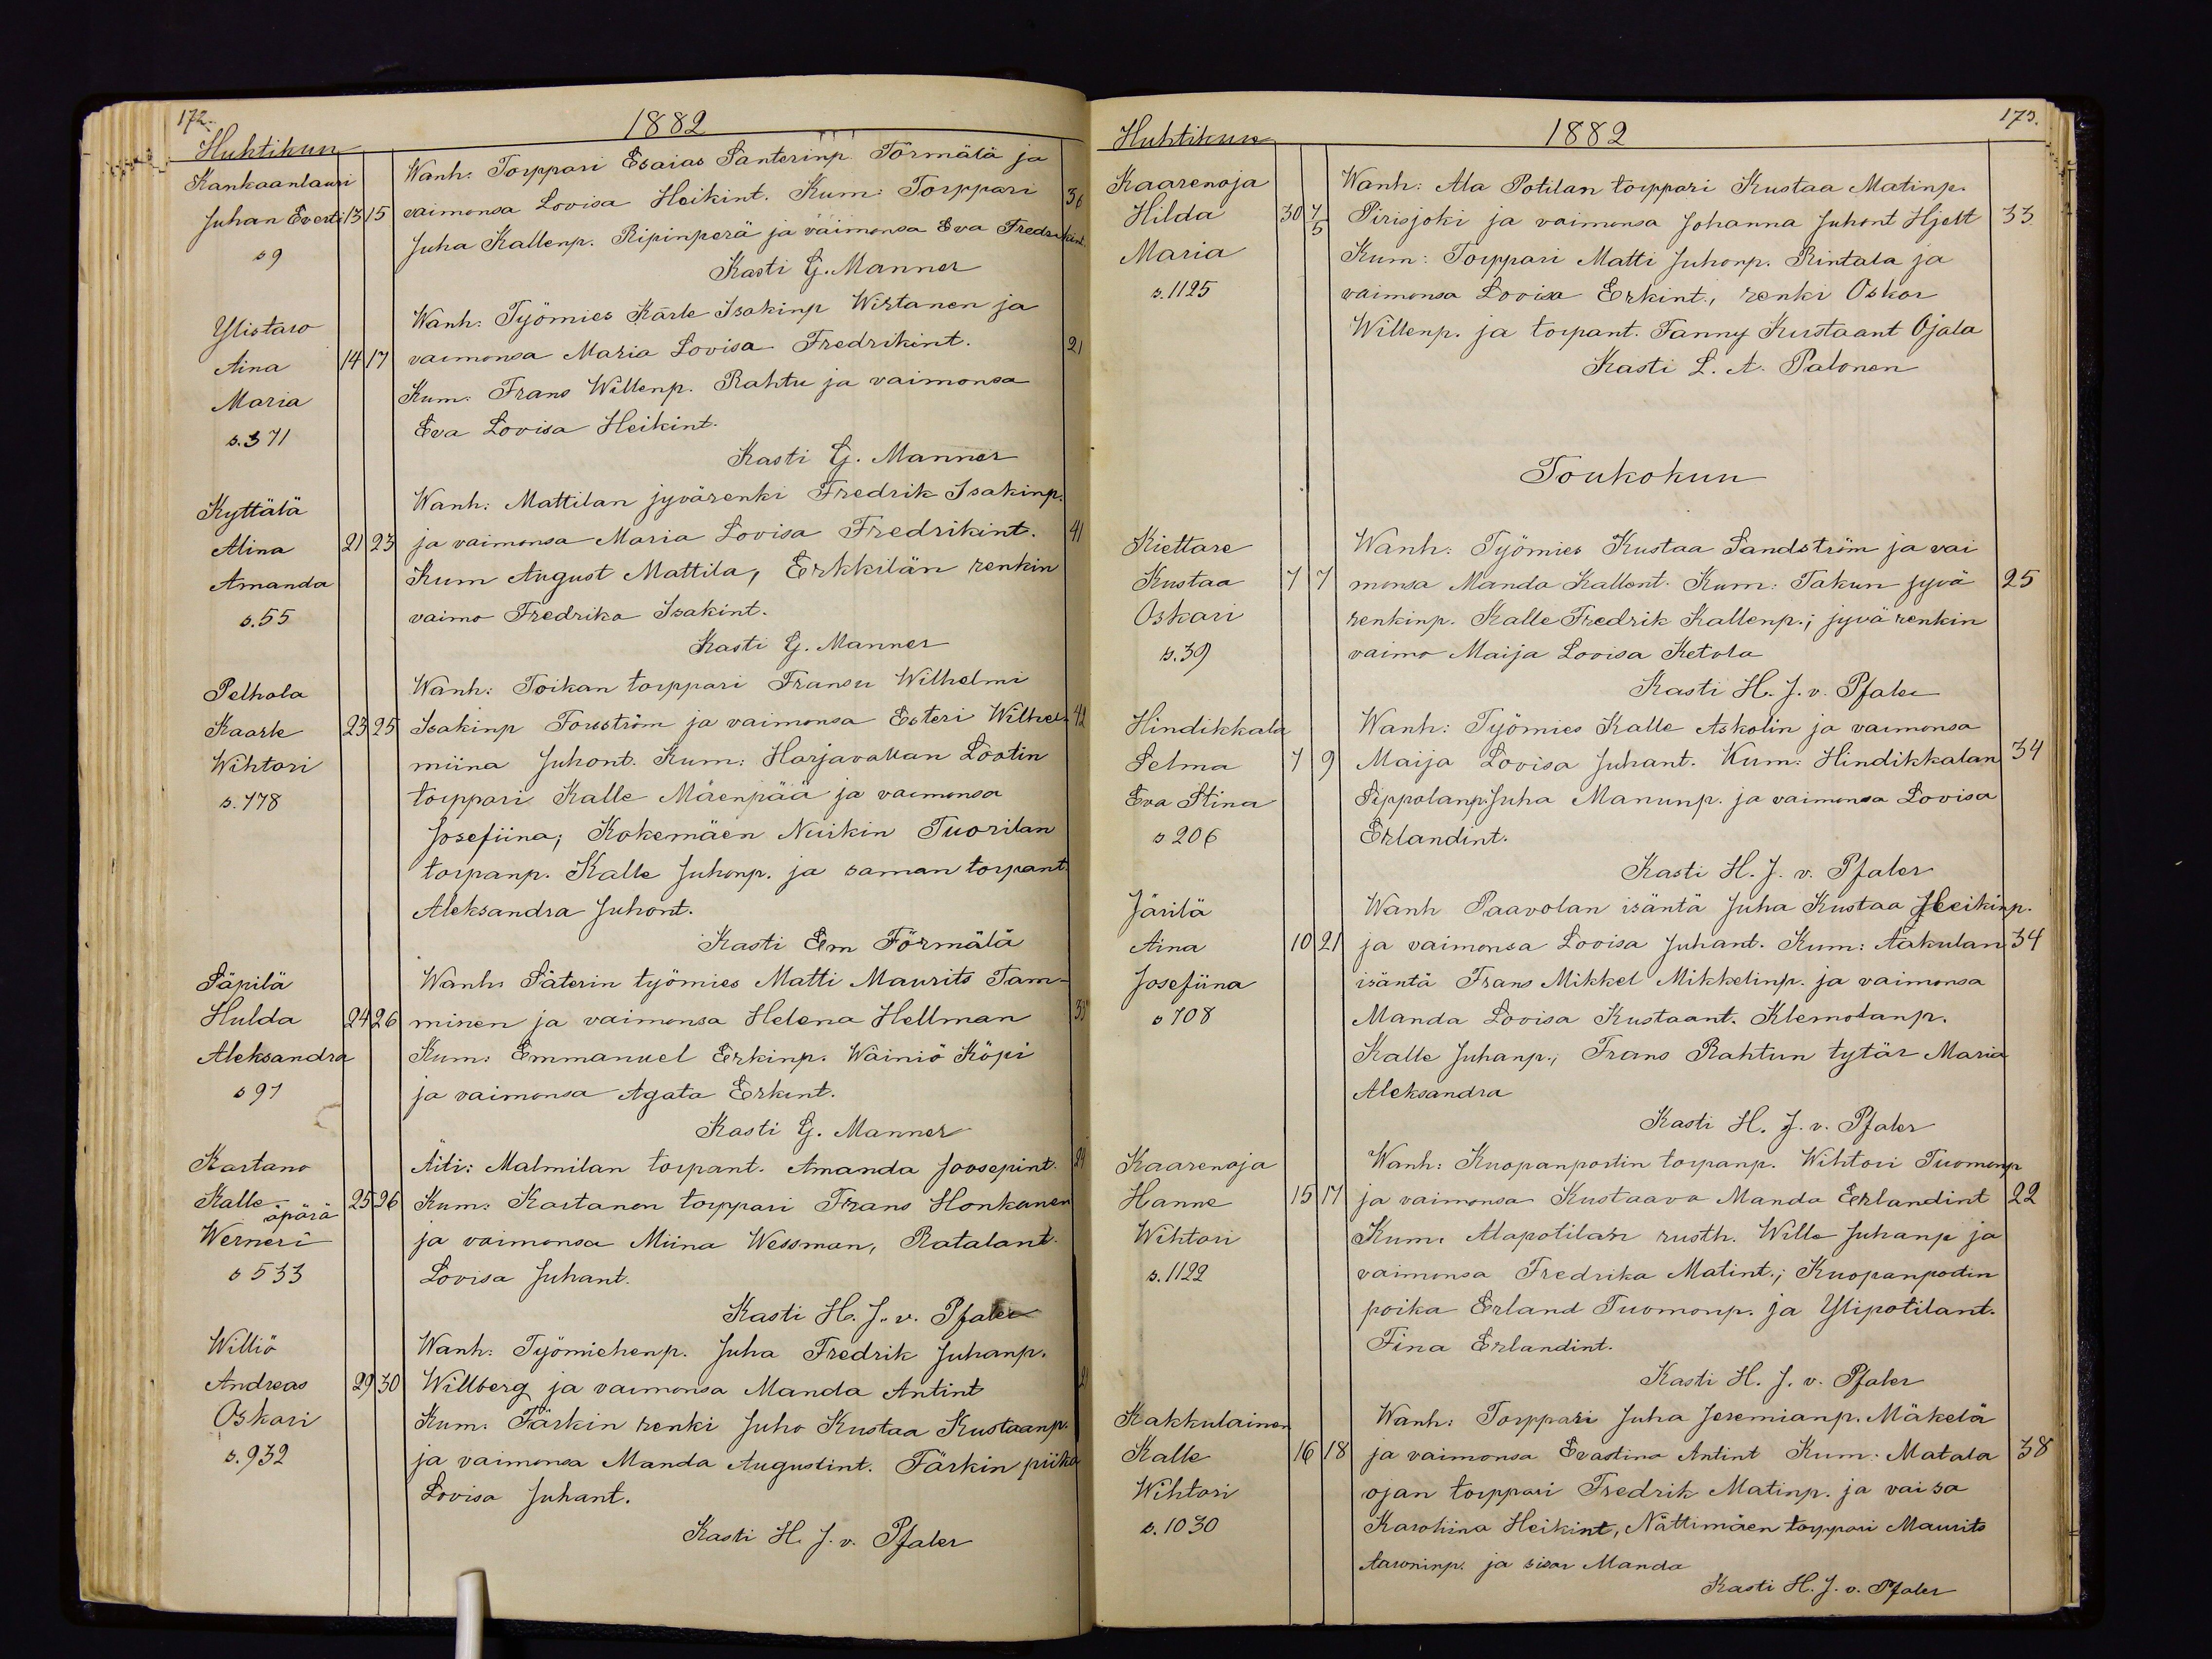 172.
1882
Huhtikun
Kankaanlauri
Juhan Everti 13 15
s 9
Wanh: Torppari Esaias Santerinp Törmälä ja
vaimonsa Lovisa Heikint. Kum: Torppari 36
Juha Kallenp. Ripinperä ja vaimonsa Eva Fredrikint.
Kasti G. Manner
Ylistaro
Aina 14 17
Maria
s. 371
Wanh: Työmies Karle Isakinp Wirtanen ja
vaimonsa Maria Lovisa Fredrikint. 21
Kum: Frans Willenp. Rahtu ja vaimonsa
Eva Lovisa Heikint.
Kasti G. Manner
Kyttälä
Alina 21 23
Amanda
s. 55
Wanh: Mattilan jyvärenki Fredrik Isakinp.
ja vaimonsa Maria Lovisa Fredrikint. 41
Kum August Mattila, Erkkilän renkin
vaimo Fredrika Isakint.
Kasti G. Manner
Pelhola
Kaarle 23 25
Wihtori
s. 778
Wanh: Toikan torppari Fransu Wilhelmi
Isakinp Forsström ja vaimonsa Esteri Wilhel- 42
miina Juhont. Kum: Harjavallan Lootin
torppari Kalle Mäenpää ja vaimonsa
Josefiina; Kokemäen Tuorilan
torpanp. Kalle Juhonp. ja saman torpant.
Aleksandra Juhont.
Kasti Em Törmälä
Säpilä
Hulda 24 26
Aleksandra
s 97
Wanh: Säterin työmies Matti Maurits Tam-
minen ja vaimonsa Helena Hellman
Kum: Emmanuel Erkinp. Wäiniö Köpi
ja vaimonsa Agata Erkint.
Kasti G. Manner
Kartano
Kalle 25 26
äpärä
Werneri
s 533
Äiti: Malmilan torpant. Amanda Joosepint.
Kum: Kartanon torppari Frans Honkanen
ja vaimonsa Miina Wessman, Ratalant.
Lovisa Juhant.
Kasti H. J. v. Pfaler
Williö
Andreas 29 30
Oskari
s. 932
Wanh: Työmiehenp. Juha Fredrik Juhanp.
Willberg ja vaimonsa Manda Antint
Kum. Färkin renki Juho Kustaa Kustaanp.
ja vaimonsa Manda Augustint. Färkin piika
Lovisa Juhant.
Kasti H. J. v. Pfaler
173.
1882
Huhtikun
Kaarenoja
Hilda 30 7/5
Maria
s. 1125
Wanh: Ala Potilan torppari Kustaa Matinp.
Pirisjoki ja vaimonsa Johanna Juhont Hjelt 33
Kum: Torppari Matti Juhonp. Rintala ja
vaimonsa Lovisa Erkint., renki Oskar
Willenp. ja torpant. Fanny Kustaant Ojala
Kasti L. A. Palonen
Toukokun
Kiettare
Kustaa 7 7
Oskari
s. 39
Wanh: Työmies Kustaa Sandström ja vai
monsa Manda Kallent. Kum: Takun jyvä 25
renkinp. Kalle Fredrik Kallenp.; jyvärenkin
vaimo Maija Lovisa Ketola
Kasti H. J. v. Pfaler
Hindikkala
Selma 7 9
Eva Stina
s 206
Wanh: Työmies Kalle Askolin ja vaimonsa
Maija Lovisa Juhant. Kum: Hindikkalan 34
Sippolanp Juha Manunp. ja vaimonsa Lovisa
Erlandint.
Kasti H. J. v. Pfaler
Järilä
Aina 10 21
Josefiina
s 708
Wanh Paavolan isäntä Juha Kustaa Heikinp.
ja vaimonsa Lovisa Juhant. Kum: Aakulan 34
isäntä Frans Mikkel Mikkelinp. ja vaimonsa
Manda Lovisa Kustaant. Klemolanp.
Kalle Juhanp.; Frans Rahtun tytär Maria
Aleksandra
Kasti H. J. v. Pfaler
Kaarenoja
Hanne 15 17
Wihtori
s. 1122
Wanh: Kuopanportin torpanp. Wihtori Tuomonp
ja vaimonsa Kustaava Manda Erlandint 22
Kum: Alapotilan rusth. Wille Juhanp ja
vaimonsa Fredrika Matint.; Kuopanpodin
poika Erland Tuomonp. ja Ylipotilant.
Fina Erlandint.
Kasti H. J. v. Pfaler
Kakkulainen
Kalle 16 18
Wihtori
s. 1030
Wanh: Torppari Juha Jeremianp. Mäkelä
ja vaimonsa Evastina Antint Kum: Matala 38
ojan torppari Fredrik Matinp. ja vaisa
Karoliina Heikint, Nättimäen torppari Maurits
Aaroninp. ja sisar Manda
Kasti H. J. v. Pfaler